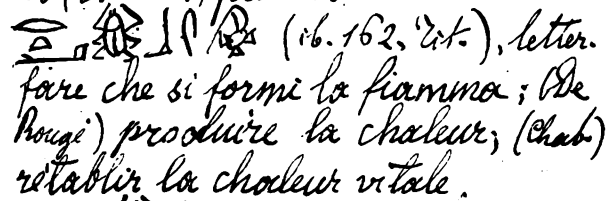 (ib. 162. Tit.), letter.
fare che si formi la fiamma; (De
Rougé) produire la chaleur; (Chab.)
rétablir la chaleur vitale.